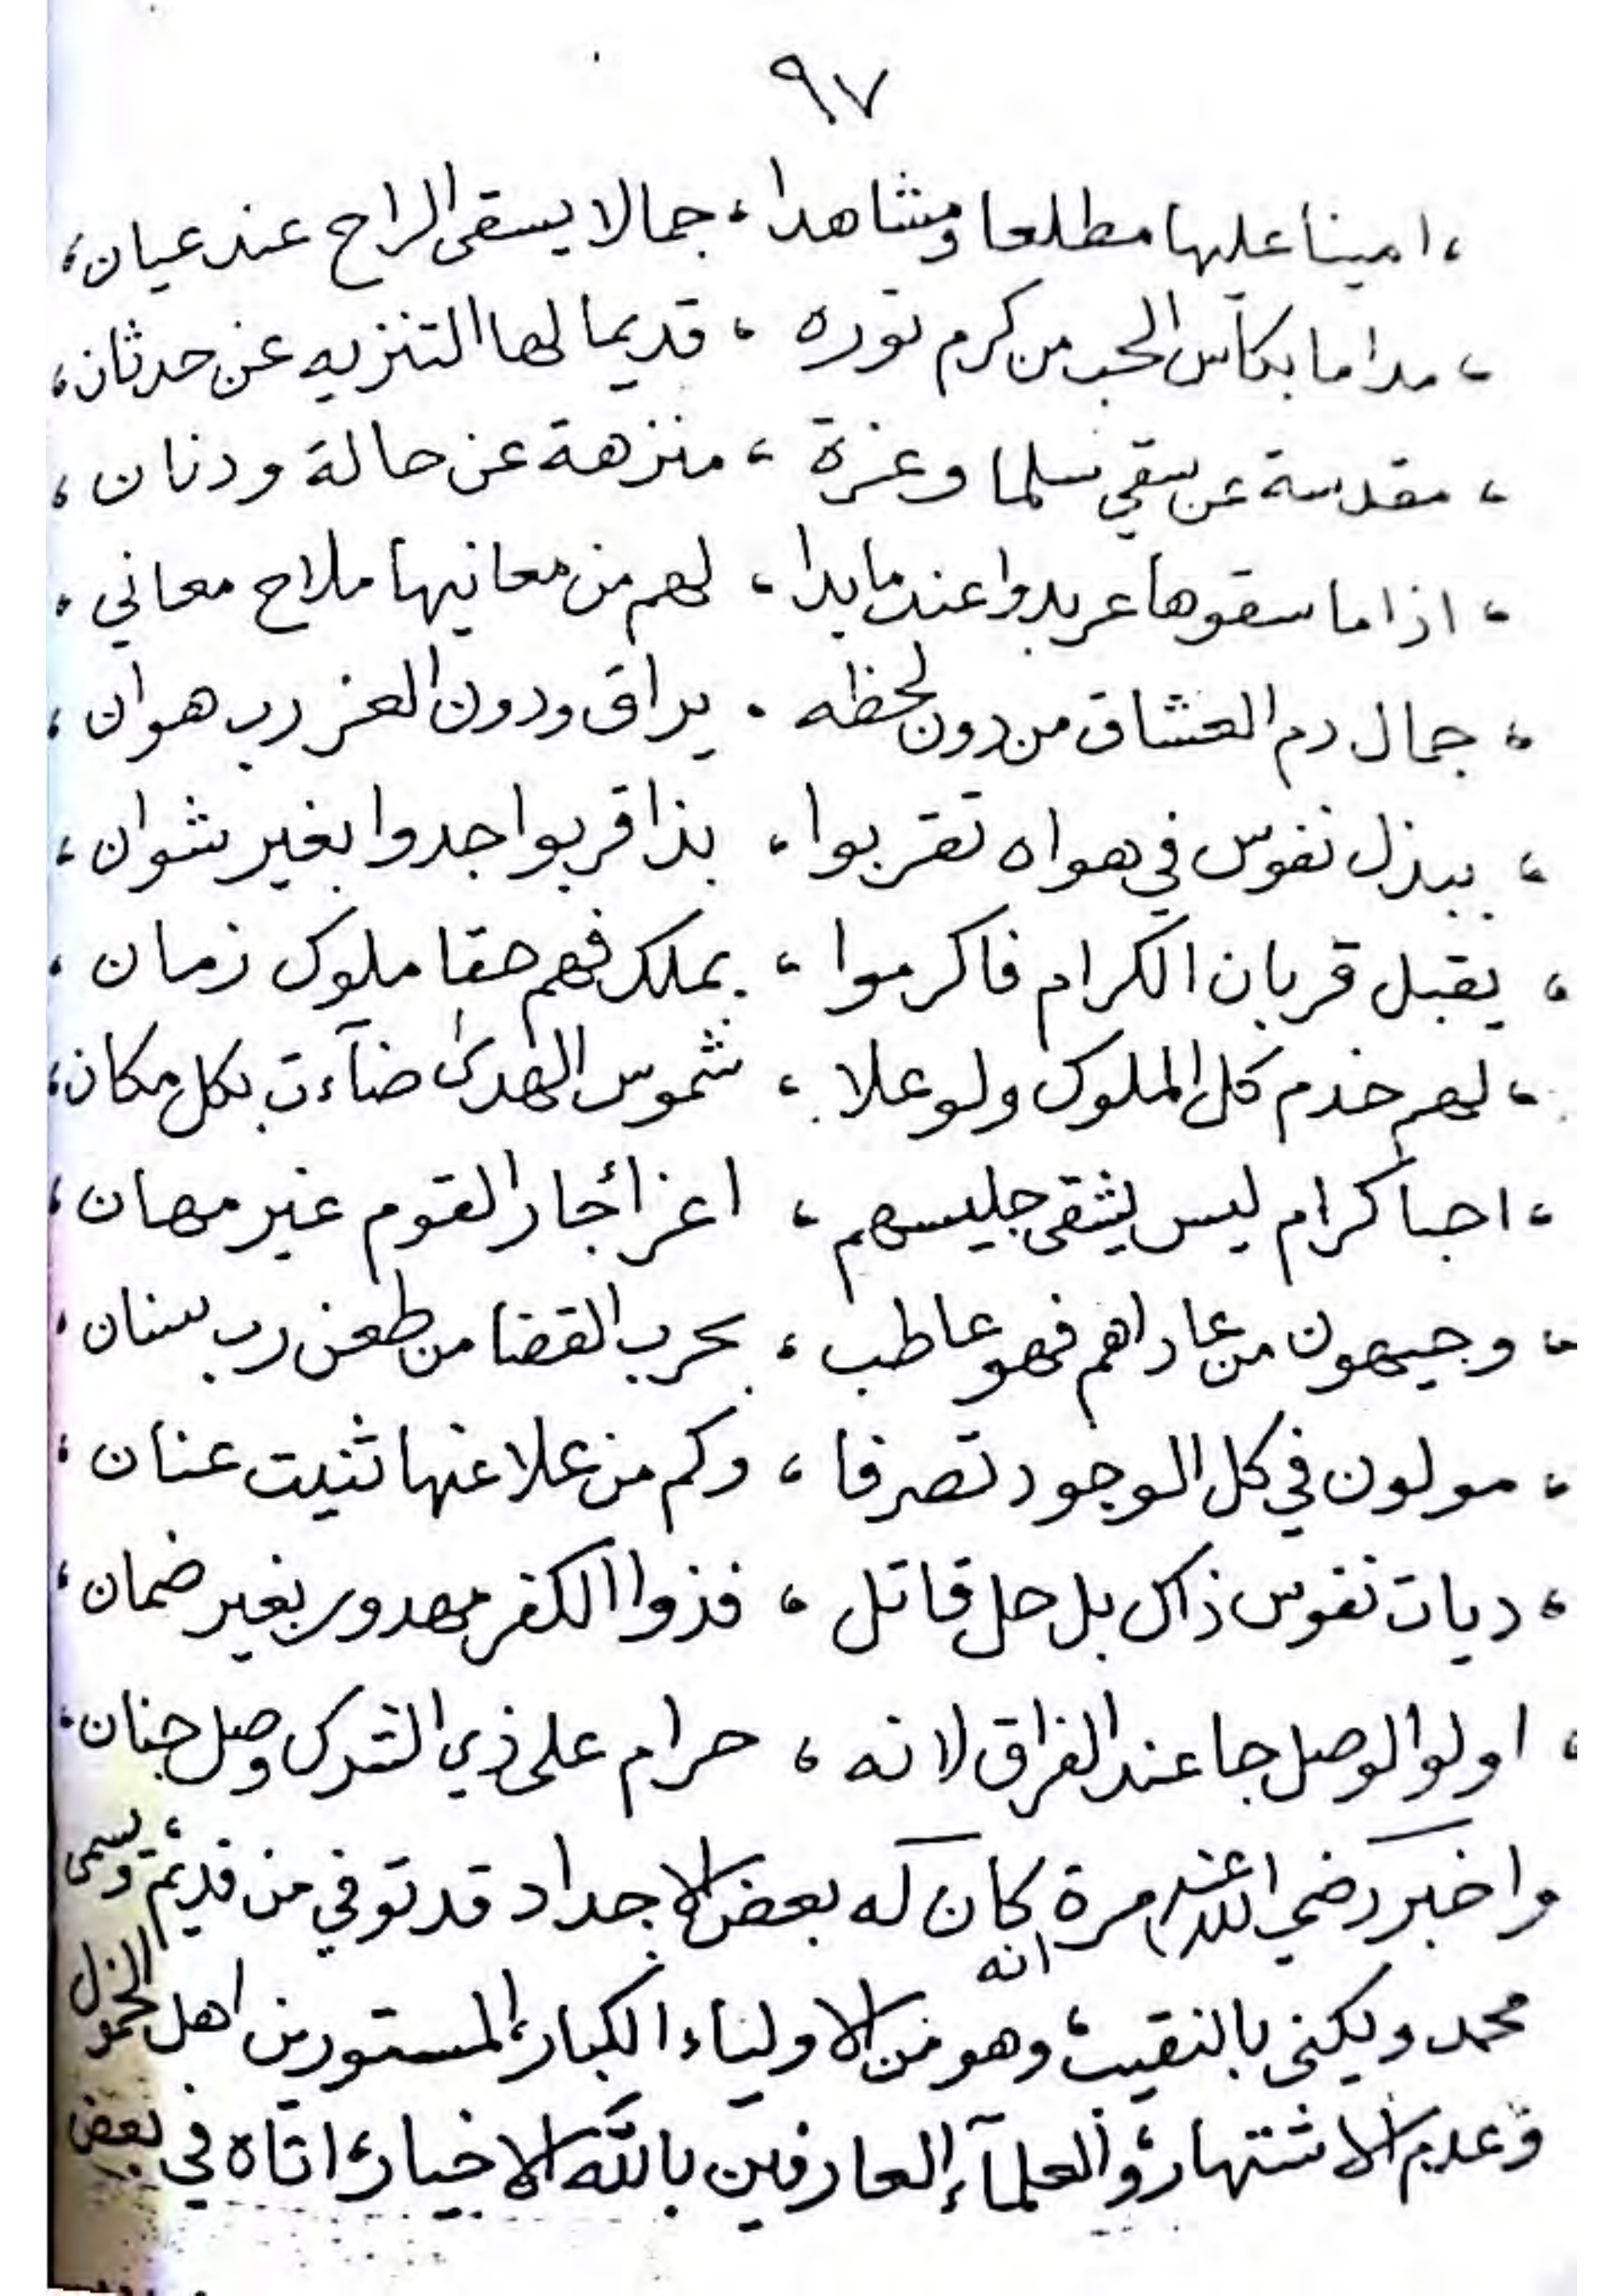 ٩٧
، امينا عليها مطلعا ومشاهدا ، جمالا يسقى الراح عند عيان ،
، مداما بكأس الحب من كرم نوره ، قديما لها التنزيه عن حدثان ،
، مقدسة عن سقي سلما وعزة ، منزهة عن حالة ودنان ،
، اذا ما سقوها عربدوا عند ما بدا ، لهم من معانيها ملاح معاني ،
، جمال دم العشاق من دون لحظه . يراق ودون العز رب هوان ،
، ببذل نفوس في هواه تقربوا ، بذا قربوا جدوا بغير ثوان ،
، يقبل قربان الكرام فاكرموا ، بملك فهم حقا ملوك زمان ،
، لهم خدم كل الملوك ولو علا ، شموس الهدى ضآءت بكل مكان ،
، احبا كرام ليس يشقى جليسهم ، اعزا جار القوم غير مهان ،
، وجيهون من عاداهم فهو عاطب ، بحرب القضا من طعن رب سنان ،
، مولون في كل الوجود تصرفا ، وكم من علا عنها ثنيت عنان ،
، ديات نفوس ذاك بل حل قاتل ، فذوا الكفر مهدور بغير ضمان ،
، اولوا الوصل جا عند الفراق لانه ، حرام على ذي الشرك وصل جنان ،
واخبر رضي الله عنه مرة انه كان له بعض الاجداد قد توفي من قديم ، ويسمى
محمد ويكنى بالنقيب ، وهو من الاولياء الكبار ، المستورين اهل الخمول
وعدم الاشتهار ، والعلمآء العارفين بالله الاخيار ، اتاه في بعض